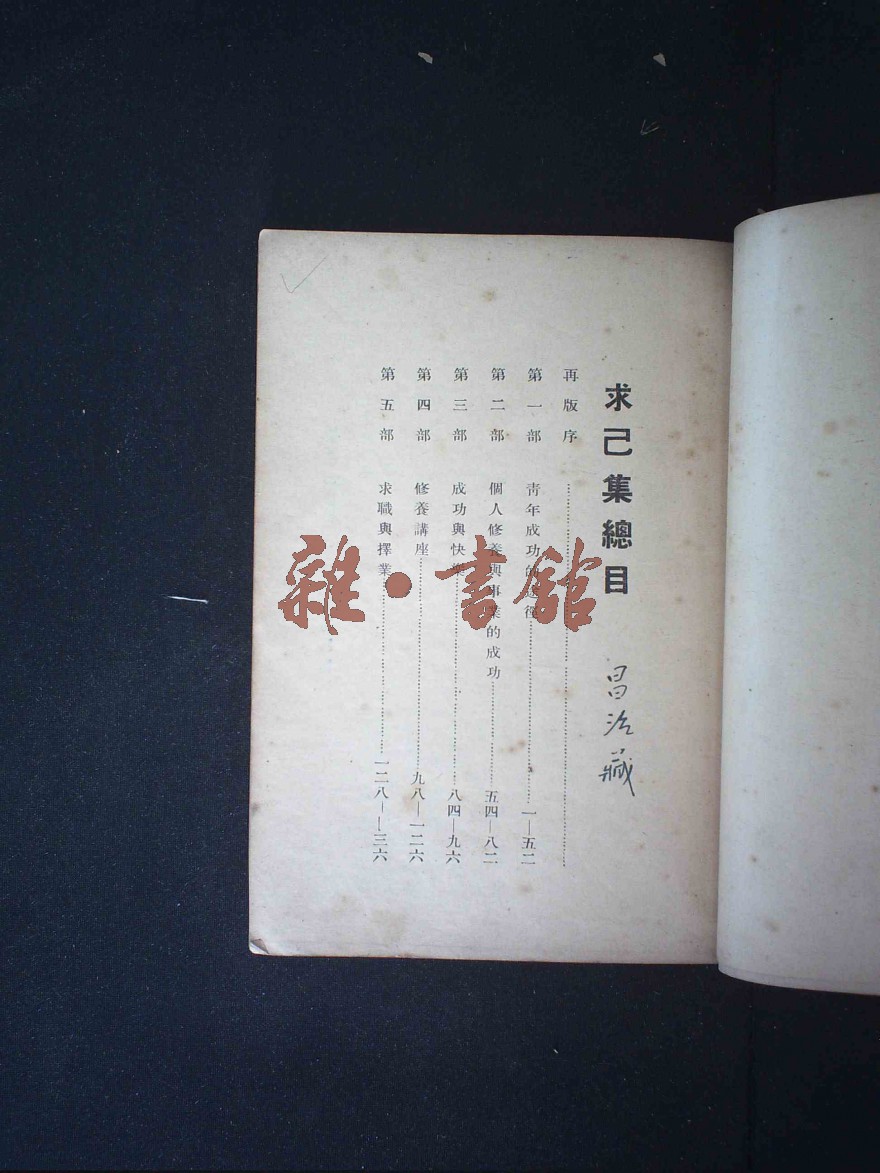 求己集總目
昌治藏
再版序
第一部 青年成功的途徑 一—五二
第二部 個人修養與事業的成功 五四—八二
第三部 成功與快樂 八四—九六
第四部 修養講座 九八—一二六
第五部 求職與擇業 一二八—一三六
雜·書館